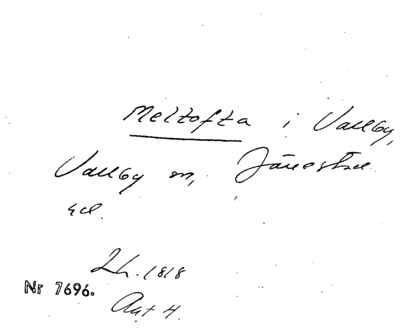 Meltofta i Vallby,
Vallby sn, Järrestads
hd.
Lh. 1818
Nr 7696.
Akt 4